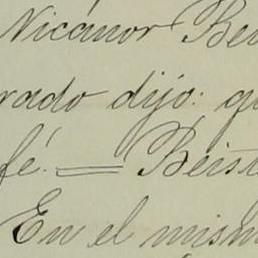 Nicánor Bei
rado dijo: q
fé. = Beist
En el mism